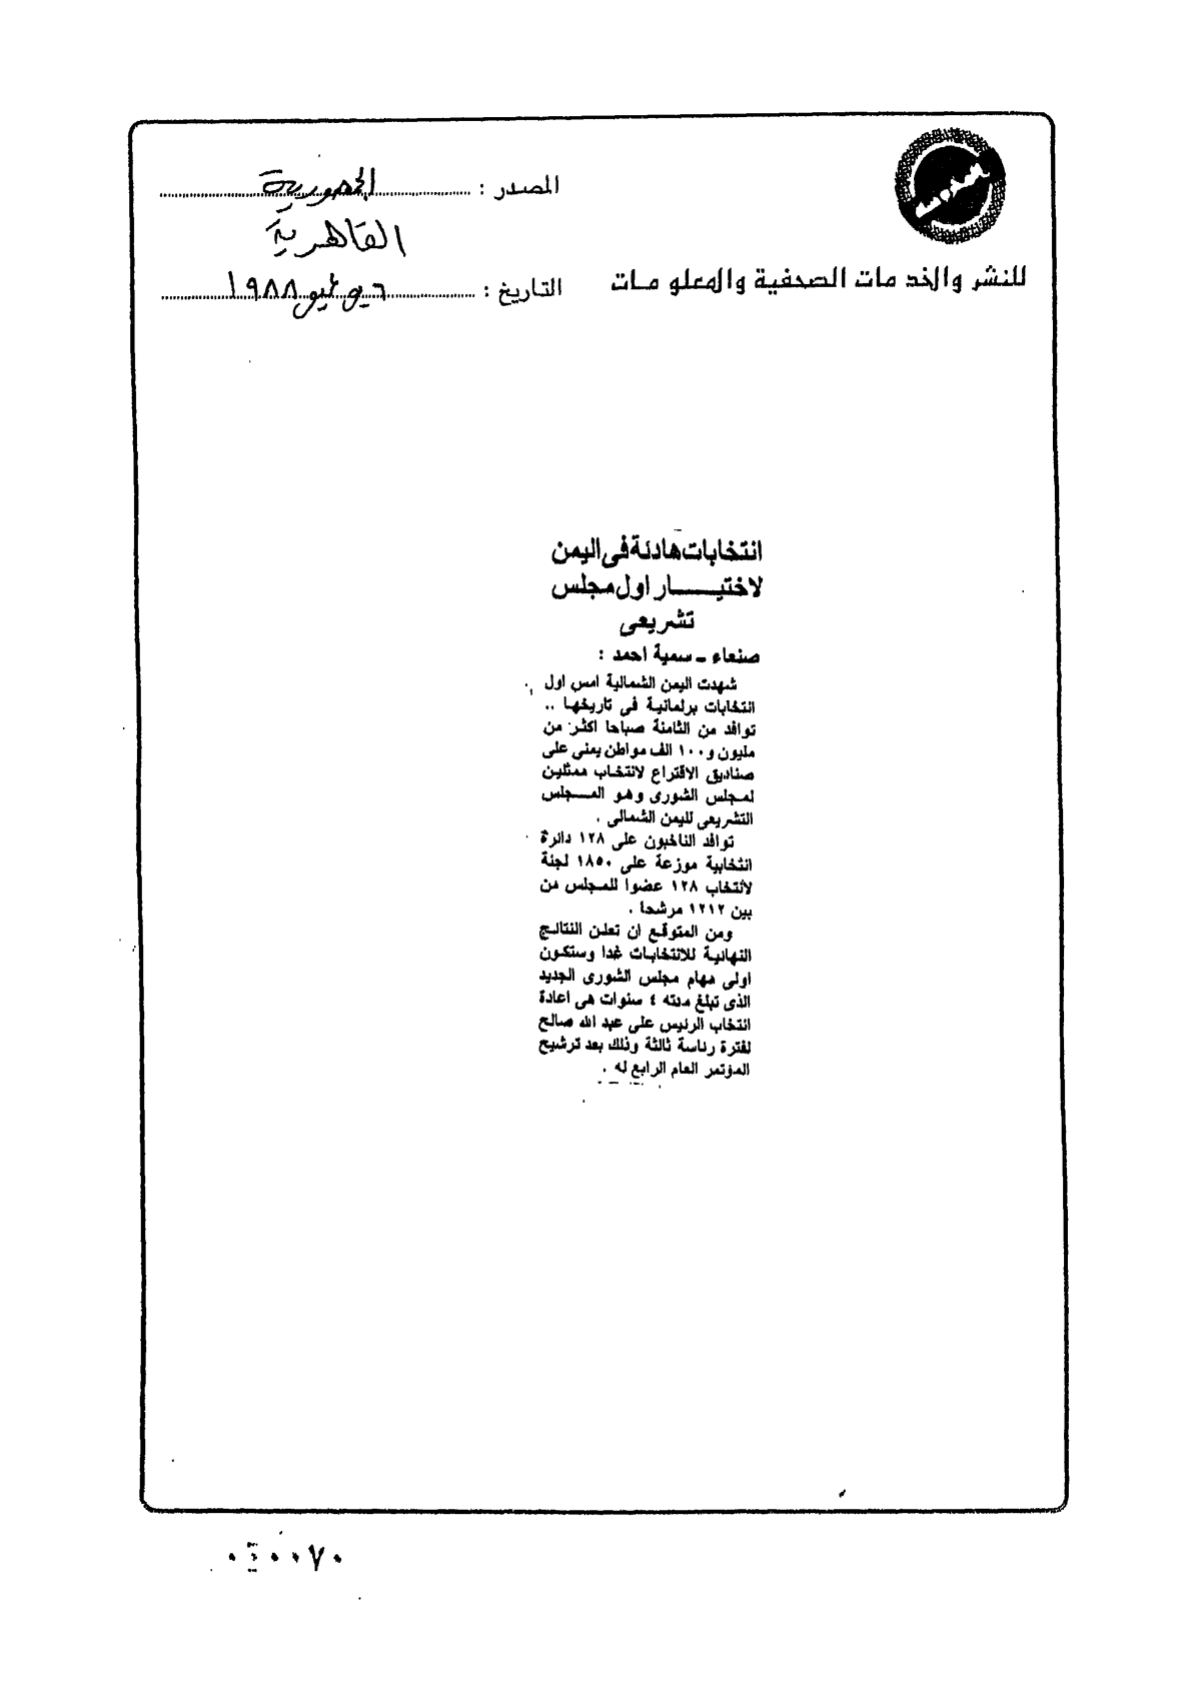 المصدر : الجمهورية
القاهرية
للنشر والخدمات الصحفية والمعلومات
التاريخ : ٦ يوليو ١٩٨٨
انتخابات هادئة فى اليمن
لاختيــــار اول مجلس
تشريعى
صنعاء ـ سمية احمد :
شهدت اليمن الشمالية امس اول
انتخابات برلمانية فى تاريخها ..
توافد من الثامنة صباحا اكثر من
مليون و١٠٠ الف مواطن يمنى على
صناديق الاقتراع لانتخاب ممثلين
لمجلس الشورى وهو المـــجلس
التشريعى لليمن الشمالى .
توافد الناخبون على ١٢٨ دائرة
انتخابية موزعة على ١٨٥٠ لجنة
لانتخاب ١٢٨ عضوا للمجلس من
بين ١٢١٢ مرشحا .
ومن المتوقع ان تعلن النتائج
النهائية للانتخابات غدا وستكون
اولى مهام مجلس الشورى الجديد
الذى تبلغ مدته ٤ سنوات هى اعادة
انتخاب الرئيس على عبد الله صالح
لفترة رئاسة ثالثة وذلك بعد ترشيح
المؤتمر العام الرابع له .